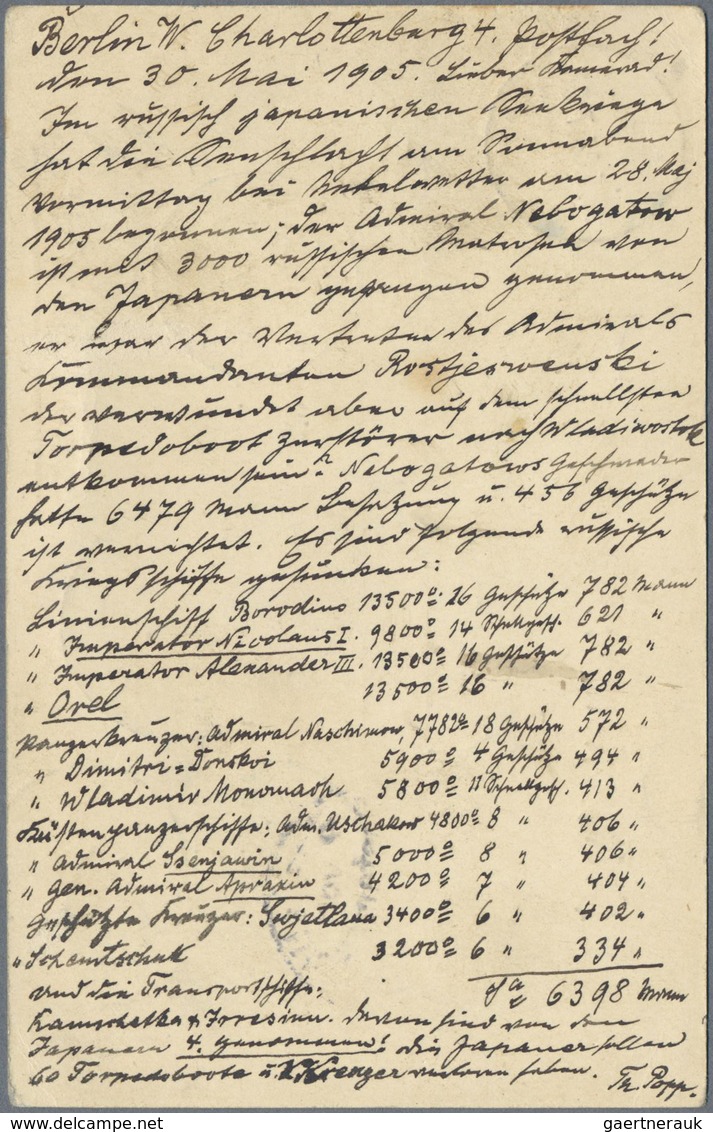 Berlin W. Charlottenburg 4. Postfach!
den 30. Mai 1905. Lieber Kamerad!
Im russisch japanischen Seekriege
hat die Seeschlacht am Sonnabend
Vormittag bei Nebelwetter am 28. Maj
1905 begonnen; der Admiral Nebogatow
ist mit 3000 russischen Matrosen von
den Japanern gefangen genommen,
er war der Vertreter des Admirals
Kommandanten Rostjeswenski
der verwundet aber auf dem schnellsten
Torpedoboot Zerstörer nach Wladiwostok
entkommen sein? Nebogatows Geschwader
hatte 6479 Mann Besatzung u. 456 Geschütze
ist vernichtet. Es sind folgende russische
Kriegsschiffe gesunken:
Linienschiff Borodino 13500 16 Geschütze 782 Mann
" Imperator Nicolaus I. 9800 14 Schellgesch. 621 "
" Imperator Alexander III. 13500 16 Geschütze 782 "
" Orel 13500 16 " 782 "
Panzerkreuzer: Admiral Naschimow 7782 18 Geschütze 572 "
" Dimitri=Donskoi 5900 4 Geschütze 494 "
" Wladimir Monomach 5800 11 Schnellgesch. 413 "
Küstenpanzerschiffe: Adm. Uschakow 4800 8 " 406 "
" Admiral Ssenjawin 5000 8 " 406 "
" Gen. Admiral Apraxin 4200 7 " 404 "
Geschützte Kreuzer: Swjatlana 3400 6 " 402 "
" Schemtschuk 3200 6 " 334 "
und die Transportschiffe: Sa 6398 Mann
Kamschatka & Irresinn. davon sind von den
Japanern 4. genommen! die Japaner sollen
60 Torpedoboote u. Kreuzer verloren haben. Th. Popp.
gaertnerauk